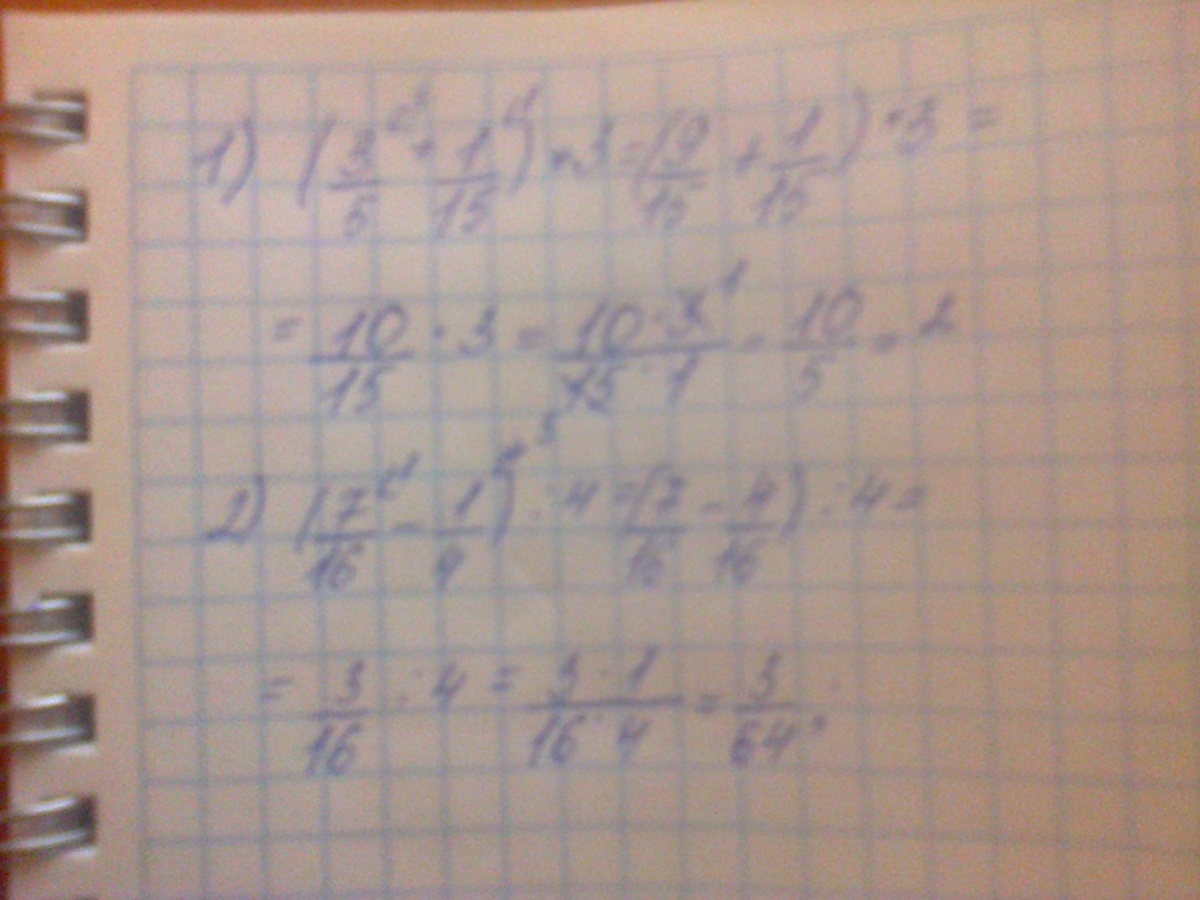 1) (3/5 + 1/15) · 3 = (9/15 + 1/15) · 3 =
= 10/15 · 3 = 10 · 3 / 15 · 1 = 10/5 = 2
2) (7/16 - 1/4) : 4 = (7/16 - 4/16) : 4 =
= 3/16 : 4 = 3 · 1 / 16 · 4 = 3/64;